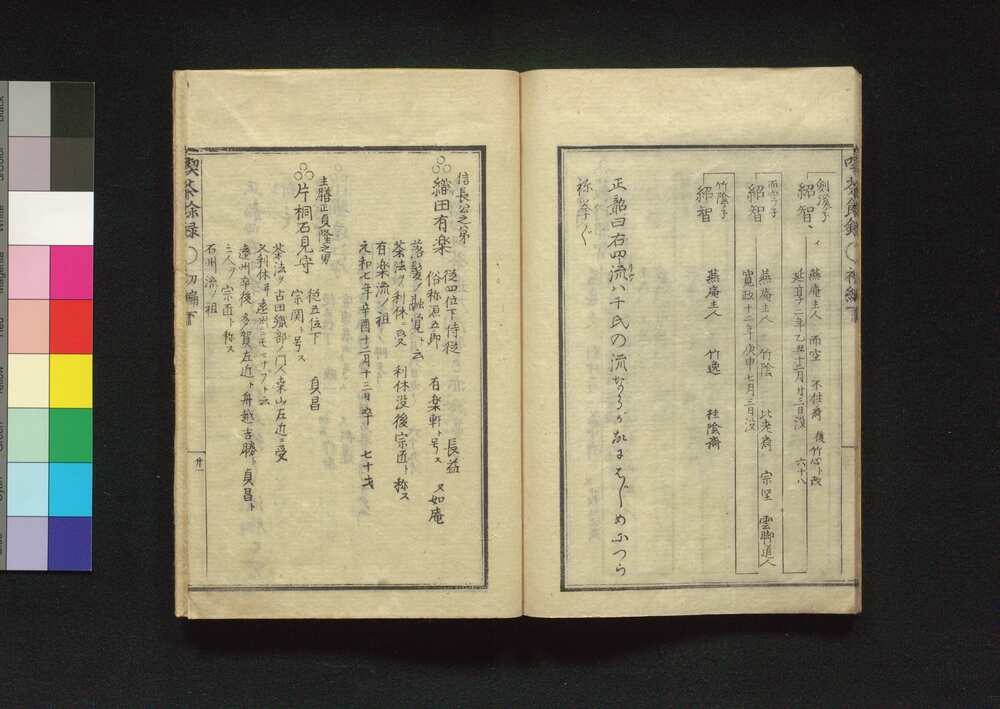 喫茶餘録 初編下
剣溪子
紹智
燕庵主人 而空 不住斎 後竹心ト改
延享二年乙丑十二月廿三日没 六十八
而空子
紹智
燕庵主人 竹陰 比老斎 宗堅 雲脚道人
寛政十二年庚申七月三日没
竹陰子
紹智
燕庵主人 竹逸 桂陰斎
正韶曰右四流ハ千氏の流
信長公之弟
織田有楽
従四位下侍従 長益
俗称源五郎 有楽軒ト号ス 又如庵
落髪ノ融覚ト云
茶法ヲ利休ニ受 利休没後宗匠ト称ス
有楽流ノ祖
元和七年辛酉十二月十三日卒 七十五才
主膳正貞隆之男
片桐石見守
従五位下 貞昌
宗関ト号ス
茶法ヲ古田織部ノ門人桑山左近ニ受
又利休并遠州ニモマナフト云
遠州卒後多賀左近ト舟越吉勝ト貞昌ト
三人ヲ宗匠ト称ス
石州流ノ祖
喫茶餘録 初編下
廿一